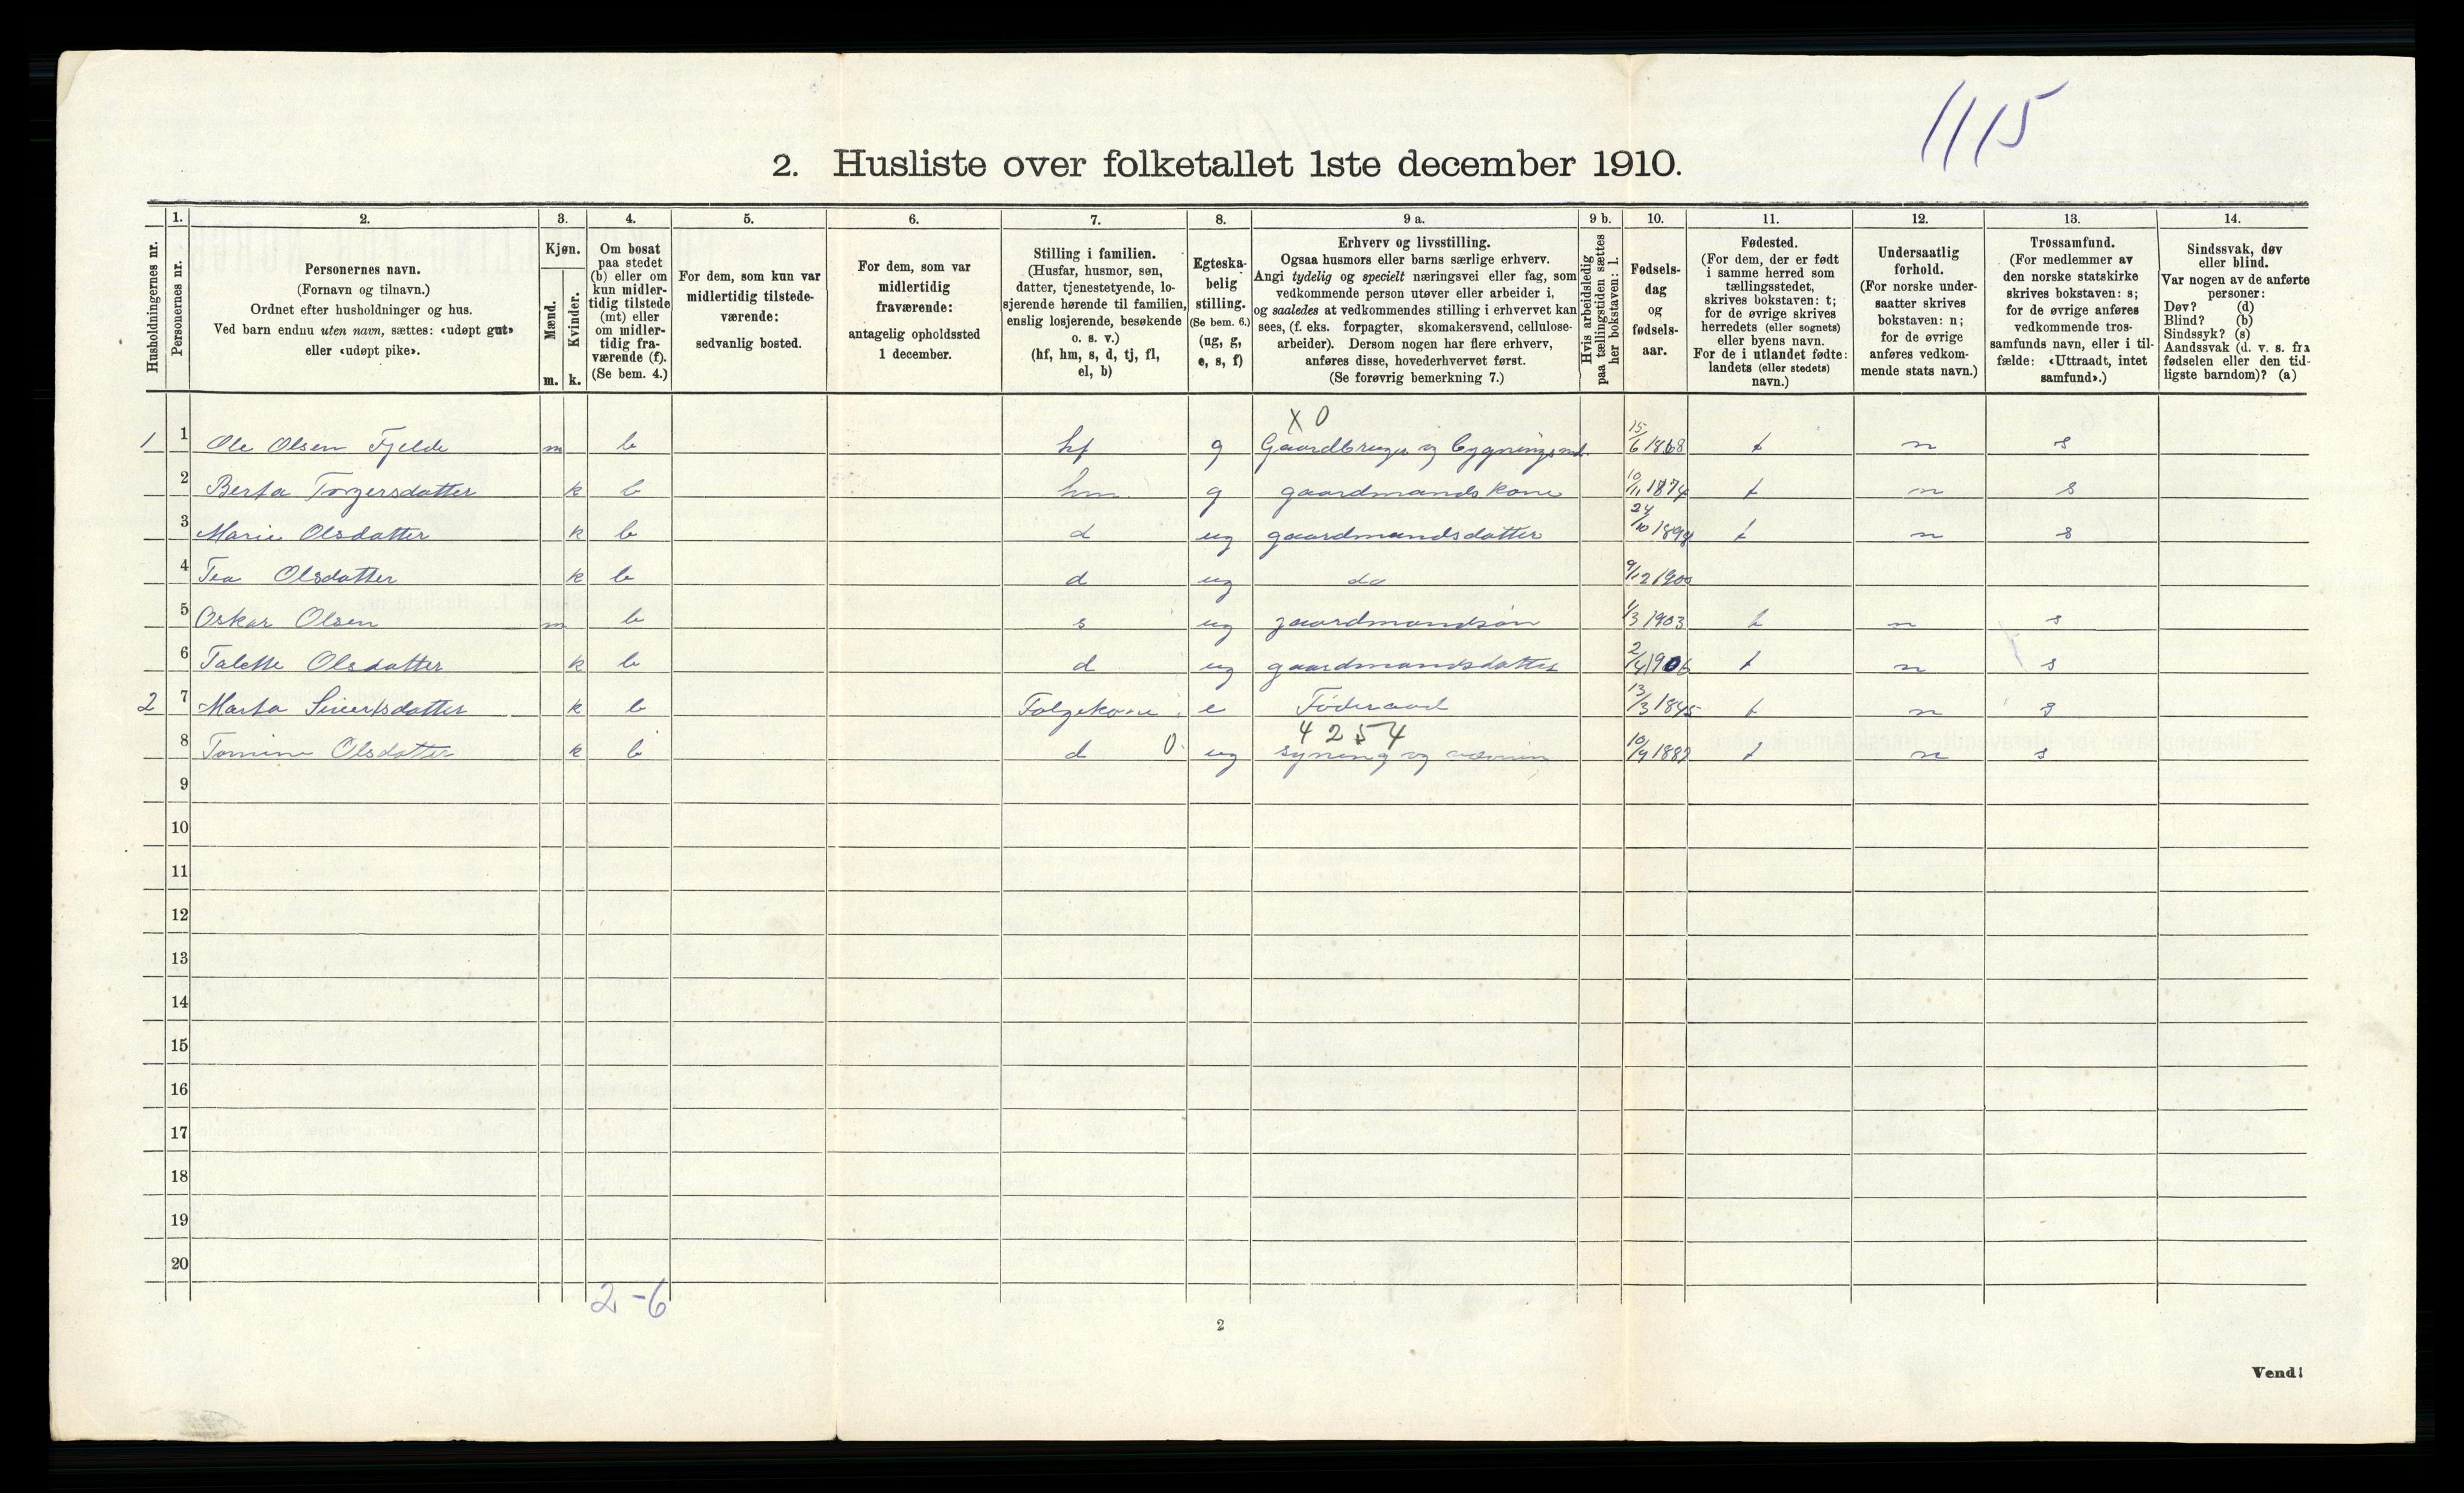 1115
2. Husliste over folketallet 1ste december 1910.
Husholdningernes nr.
1. Personernes nr.
2. Personernes navn.
(Fornavn og tilnavn.)
Ordnet efter husholdninger og hus.
Ved barn endnu uten navn, sættes: «udøpt gut»
eller «udøpt pike».
3. Kjøn.
Mænd. m.
Kvinder. k.
4. Om bosat
paa stedet
(b) eller om
kun midler-
tidig tilstede
(mt) eller
om midler-
tidig fra-
værende (f).
(Se bem. 4.)
5. For dem, som kun var
midlertidig tilstede-
værende:
sedvanlig bosted.
6. For dem, som var
midlertidig
fraværende:
antagelig opholdssted
1 december.
7. Stilling i familien.
(Husfar, husmor, søn,
datter, tjenestetyende, lo-
sjerende hørende til familien,
enslig losjerende, besøkende
o. s. v.)
(hf, hm, s, d, tj, fl,
el, b)
8. Egteska-
belig
stilling.
(Se bem. 6.)
(ug, g,
e, s, f)
9 a. Erhverv og livsstilling.
Ogsaa husmors eller barns særlige erhverv.
Angi tydelig og specielt næringsvei eller fag, som
vedkommende person utøver eller arbeider i,
og saaledes at vedkommendes stilling i erhvervet kan
sees, (f. eks. forpagter, skomakersvend, cellulose-
arbeider). Dersom nogen har flere erhverv,
anføres disse, hovederhvervet først.
(Se forøvrig bemerkning 7.)
9 b. Hvis arbeidsledig
paa tællingstiden sættes
her bokstaven: l.
10. Fødsels-
dag
og
fødsels-
aar.
11. Fødested.
(For dem, der er født
i samme herred som
tællingsstedet,
skrives bokstaven: t;
for de øvrige skrives
herredets (eller sognets)
eller byens navn.
For de i utlandet fødte:
landets (eller stedets)
navn.)
12. Undersaatlig
forhold.
(For norske under-
saatter skrives
bokstaven: n;
for de øvrige
anføres vedkom-
mende stats navn.)
13. Trossamfund.
(For medlemmer av
den norske statskirke
skrives bokstaven: s;
for de øvrige anføres
vedkommende tros-
samfunds navn, eller i til-
fælde: «Uttraadt, intet
samfund».)
14. Sindssvak, døv
eller blind.
Var nogen av de anførte
personer:
Døv? (d)
Blind? (b)
Sindssyk? (s)
Aandssvak (d. v. s. fra
fødselen eller den tid-
ligste barndom)? (a)
X 0
1 1 Ole Olsen Fjelde m b hf g Gaardbruger og bygningsmd. 15/6 1868 t n s
2 Berta Torgersdatter k b hm g gaardmandskone 10/11 1874 t n s
3 Marie Olsdatter k b d ug gaardmandsdatter 24/10 1898 t n s
4 Tea Olsdatter k b d ug do 9/12 1900
5 Oskar Olsen m b s ug gaardmandsøn 1/3 1903 t n s
6 Talette Olsdatter k b d ug gaardmandsdatter 2/4 1906 t n s
2 7 Marta Sivertsdatter k b Folgekone e Føderaad 13/3 1845 t n s
4 2 5 4
8 Tomine Olsdatter k b d 0 ug syning og 10/9 1882 t n s
9
10
11
12
13
14
15
16
17
18
19
20
2-6
2
Vend!